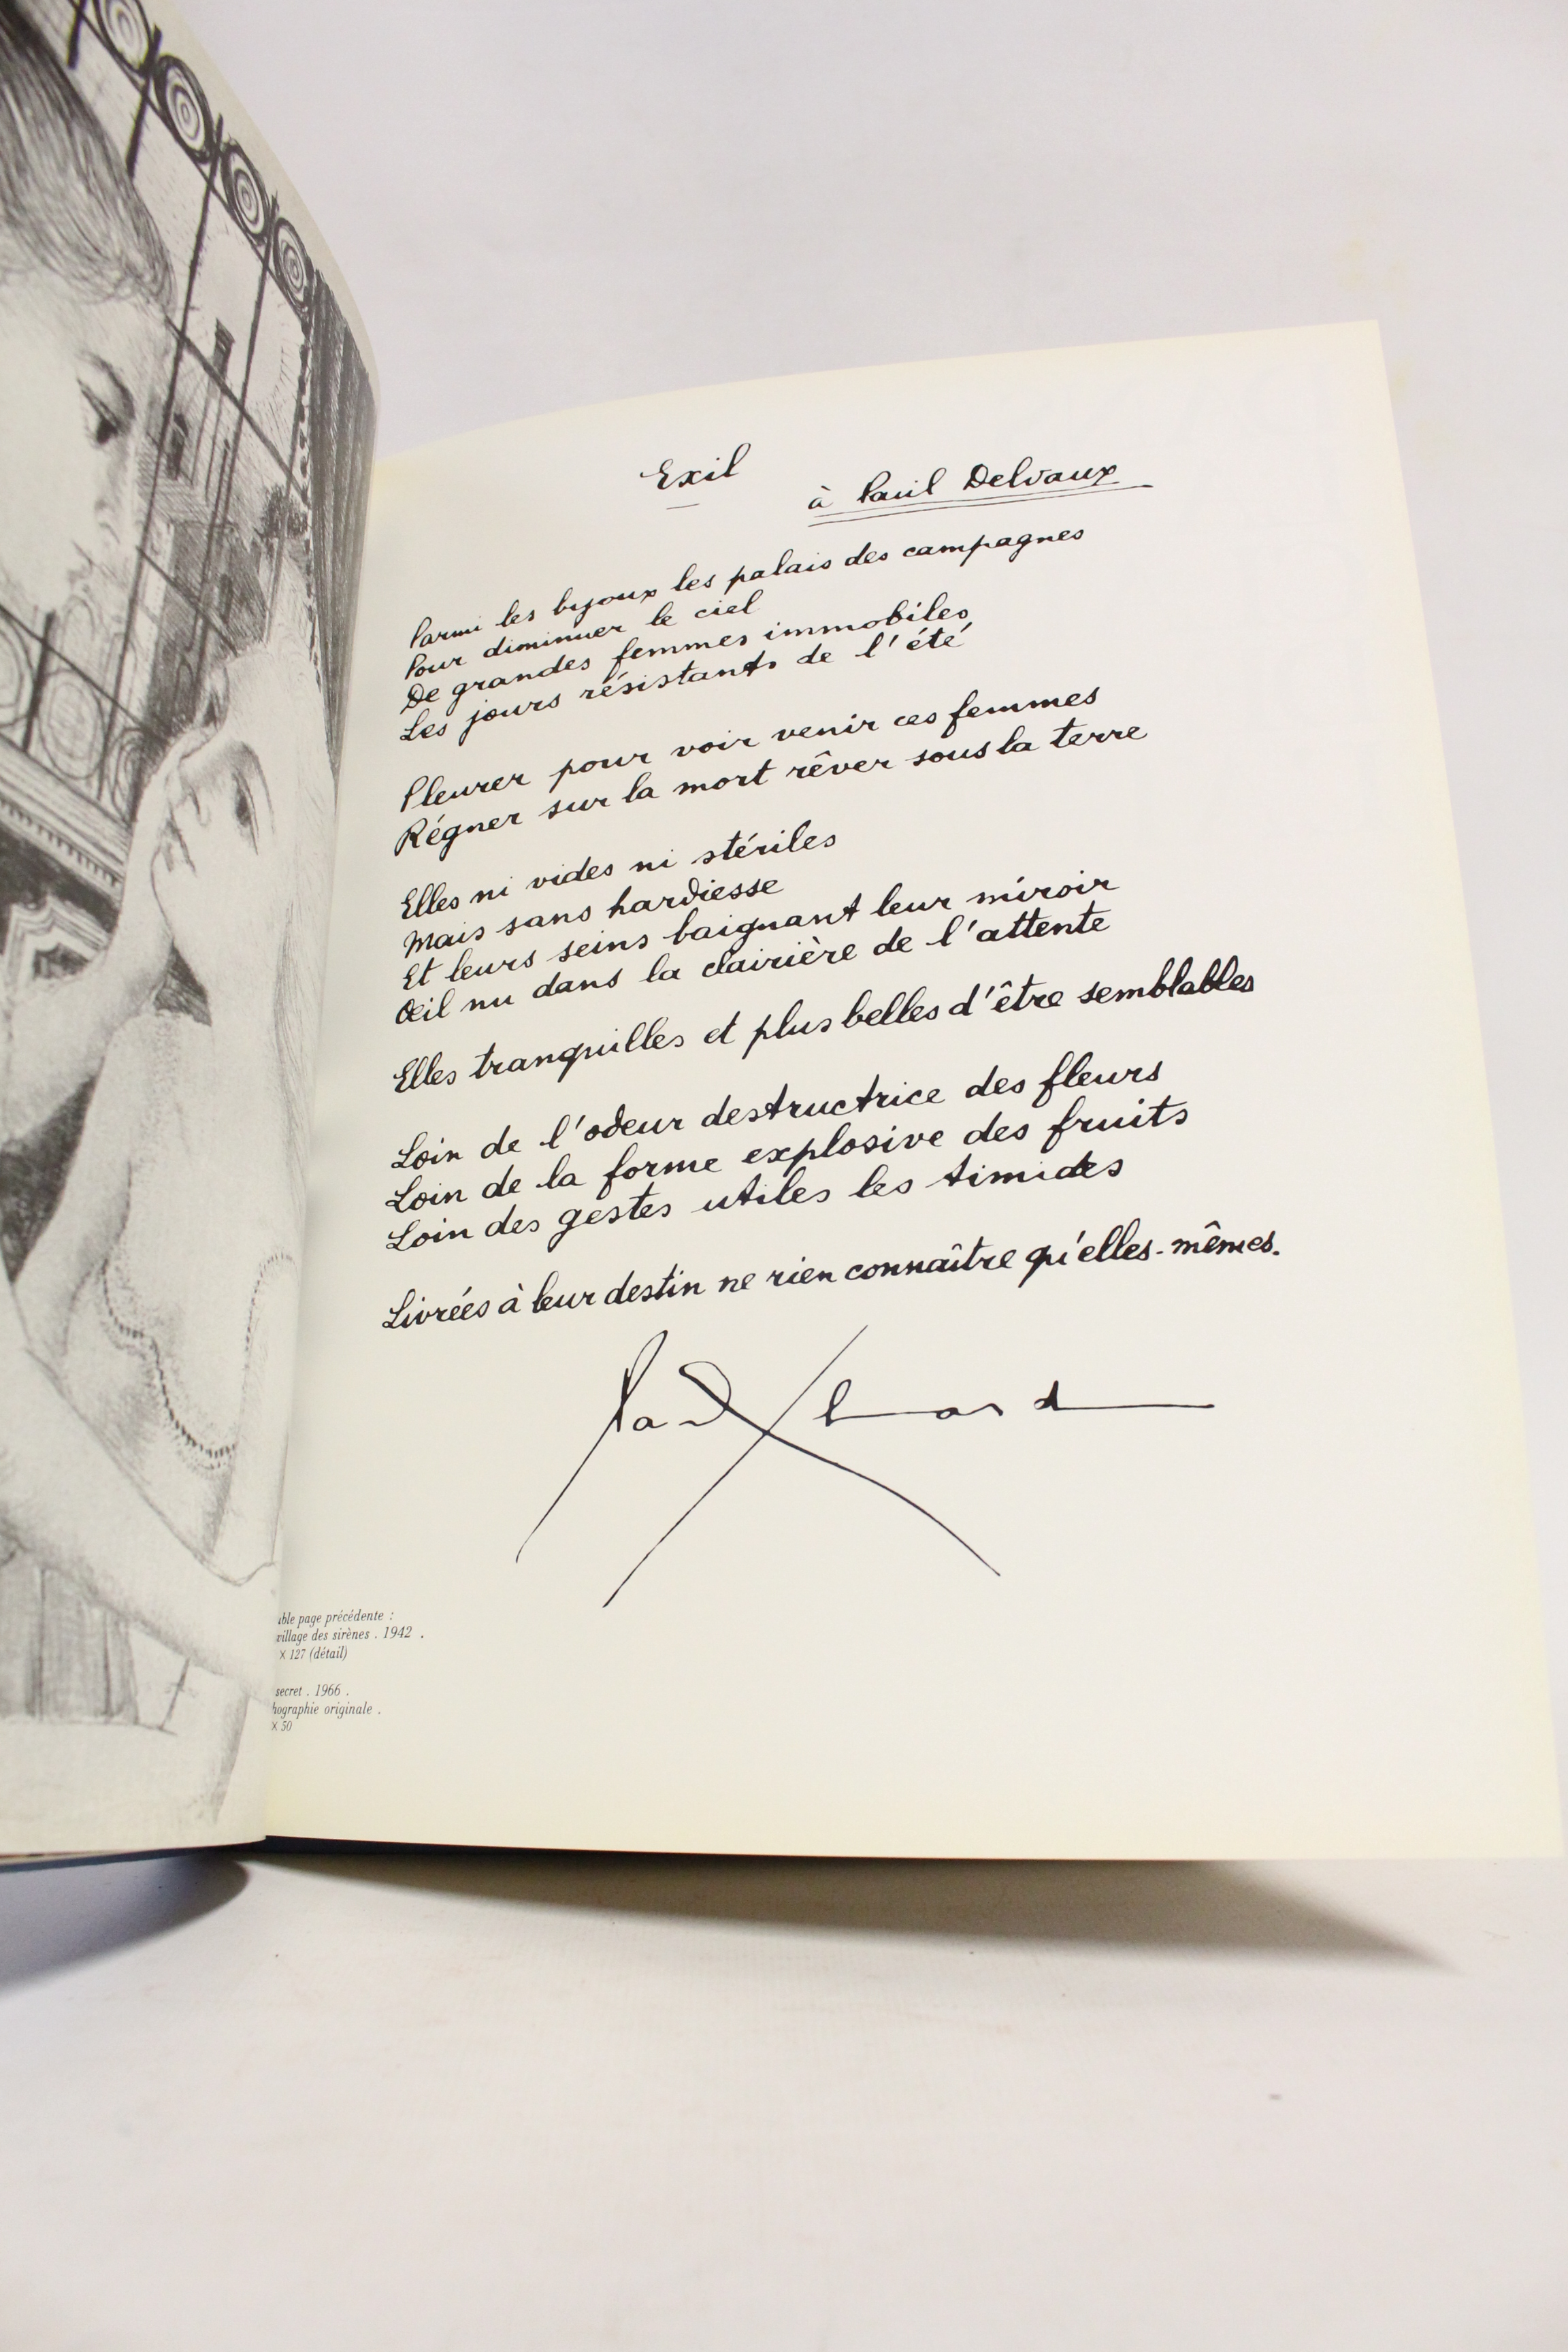 Exil
à Paul Delvaux
Parmi les bijoux les palais des campagnes
Pour diminuer le ciel
De grandes femmes immobiles
Les jours résistants de l'été
Pleurer pour voir venir ces femmes
Régner sur la mort rêver sous la terre
Elles ni vides ni stériles
Mais sans hardiesse
Et leurs seins baignant leur miroir
Œil nu dans la clairière de l'attente
Elles tranquilles et plus belles d'être semblables
Loin de l'odeur destructrice des fleurs
Loin de la forme explosive des fruits
Loin des gestes utiles les timides
Livrées à leur destin ne rien connaître qu'elles-mêmes.
Paul Eluard
page précédente :
village des sirènes . 1942 .
× 127 (détail)
secret . 1966 .
originale .
× 50